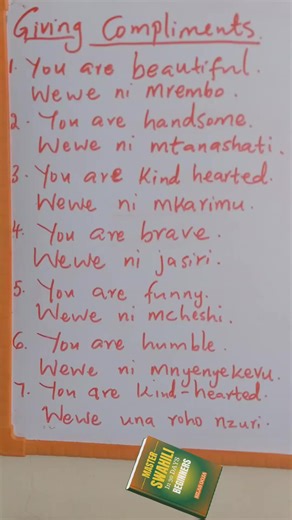 Giving Compliments.
1. You are beautiful.
Wewe ni mrembo.
2. You are handsome.
Wewe ni mtanashati.
3. You are Kind hearted.
Wewe ni mkarimu.
4. You are brave.
Wewe ni jasiri.
5. You are funny.
Wewe ni mcheshi.
6. You are humble.
Wewe ni mnyenyekevu.
7. You are Kind-hearted.
Wewe una roho nzuri.
MASTER
SWAHILI
BEGINNERS